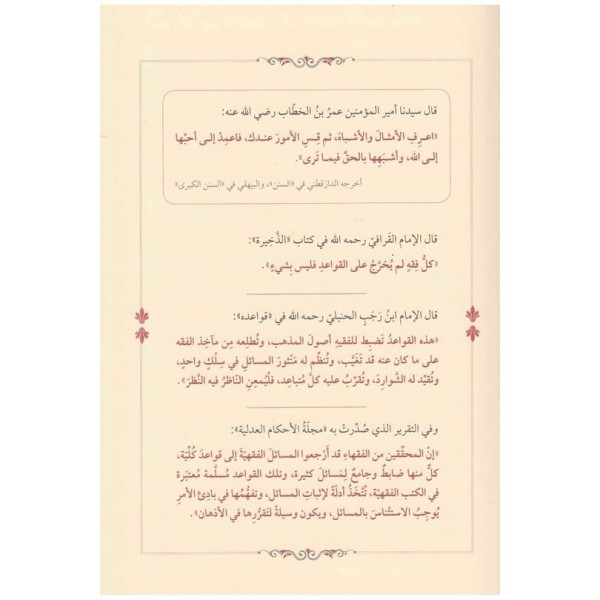 قال سيدنا أمير المؤمنين عمرُ بنُ الخطّاب رضي الله عنه:
«اعـرِفِ الأمثـالَ والأشـباهَ، ثم قِـسِ الأمورَ عنـدك، فاعمِدْ إلـى أحبِّها
إلى الله، وأشـبَهِها بالحقِّ فيمـا تَرى».
أخرجه الدارَقطني في «السنن»، والبيهقي في «السنن الكبرى»
قال الإمام القَرافيّ رحمه الله في كتاب «الذَّخِيرة»:
«كلُّ فِقهٍ لم يُخرَّجْ على القواعدِ فليس بِشيءٍ».
قال الإمام ابنُ رَجَبٍ الحنبليّ رحمه الله في «قواعده»:
«هذه القواعدُ تَضبِط للفقيهِ أصولَ المذهب، وتُطلِعه مِن مآخِذِ الفقه
على ما كان عنه قد تَغَيَّب، وتُنظِّم له مَنْثورَ المسائـلِ في سِلْكٍ واحدٍ،
وتُقيِّد له الشَّوارِدَ، وتُقرِّبُ عليه كلَّ مُتباعِد، فلْيُمعِنِ النّاظرُ فيه النَّظَرَ».
وفي التقرير الذي صُدِّرتْ به «مجلّةُ الأحكام العدلية»:
«إنّ المحقّقين من الفقهاءِ قد أَرْجعوا المسائلَ الفقهيّةَ إلى قواعدَ كُلِّيّة،
كلٌّ منها ضابطٌ وجامعٌ لِمَسائلَ كثيرة، وتلك القواعد مُسلَّمة مُعتبَرة
في الكتب الفقهيّة، تُتَّخَذُ أدلةً لإثباتِ المسائل، وتفهُّمُها في بادِئِ الأمرِ
يُوجِبُ الاستئناسَ بالمسائل، ويكون وسيلةً لتَقرُّرِها في الأذهان».